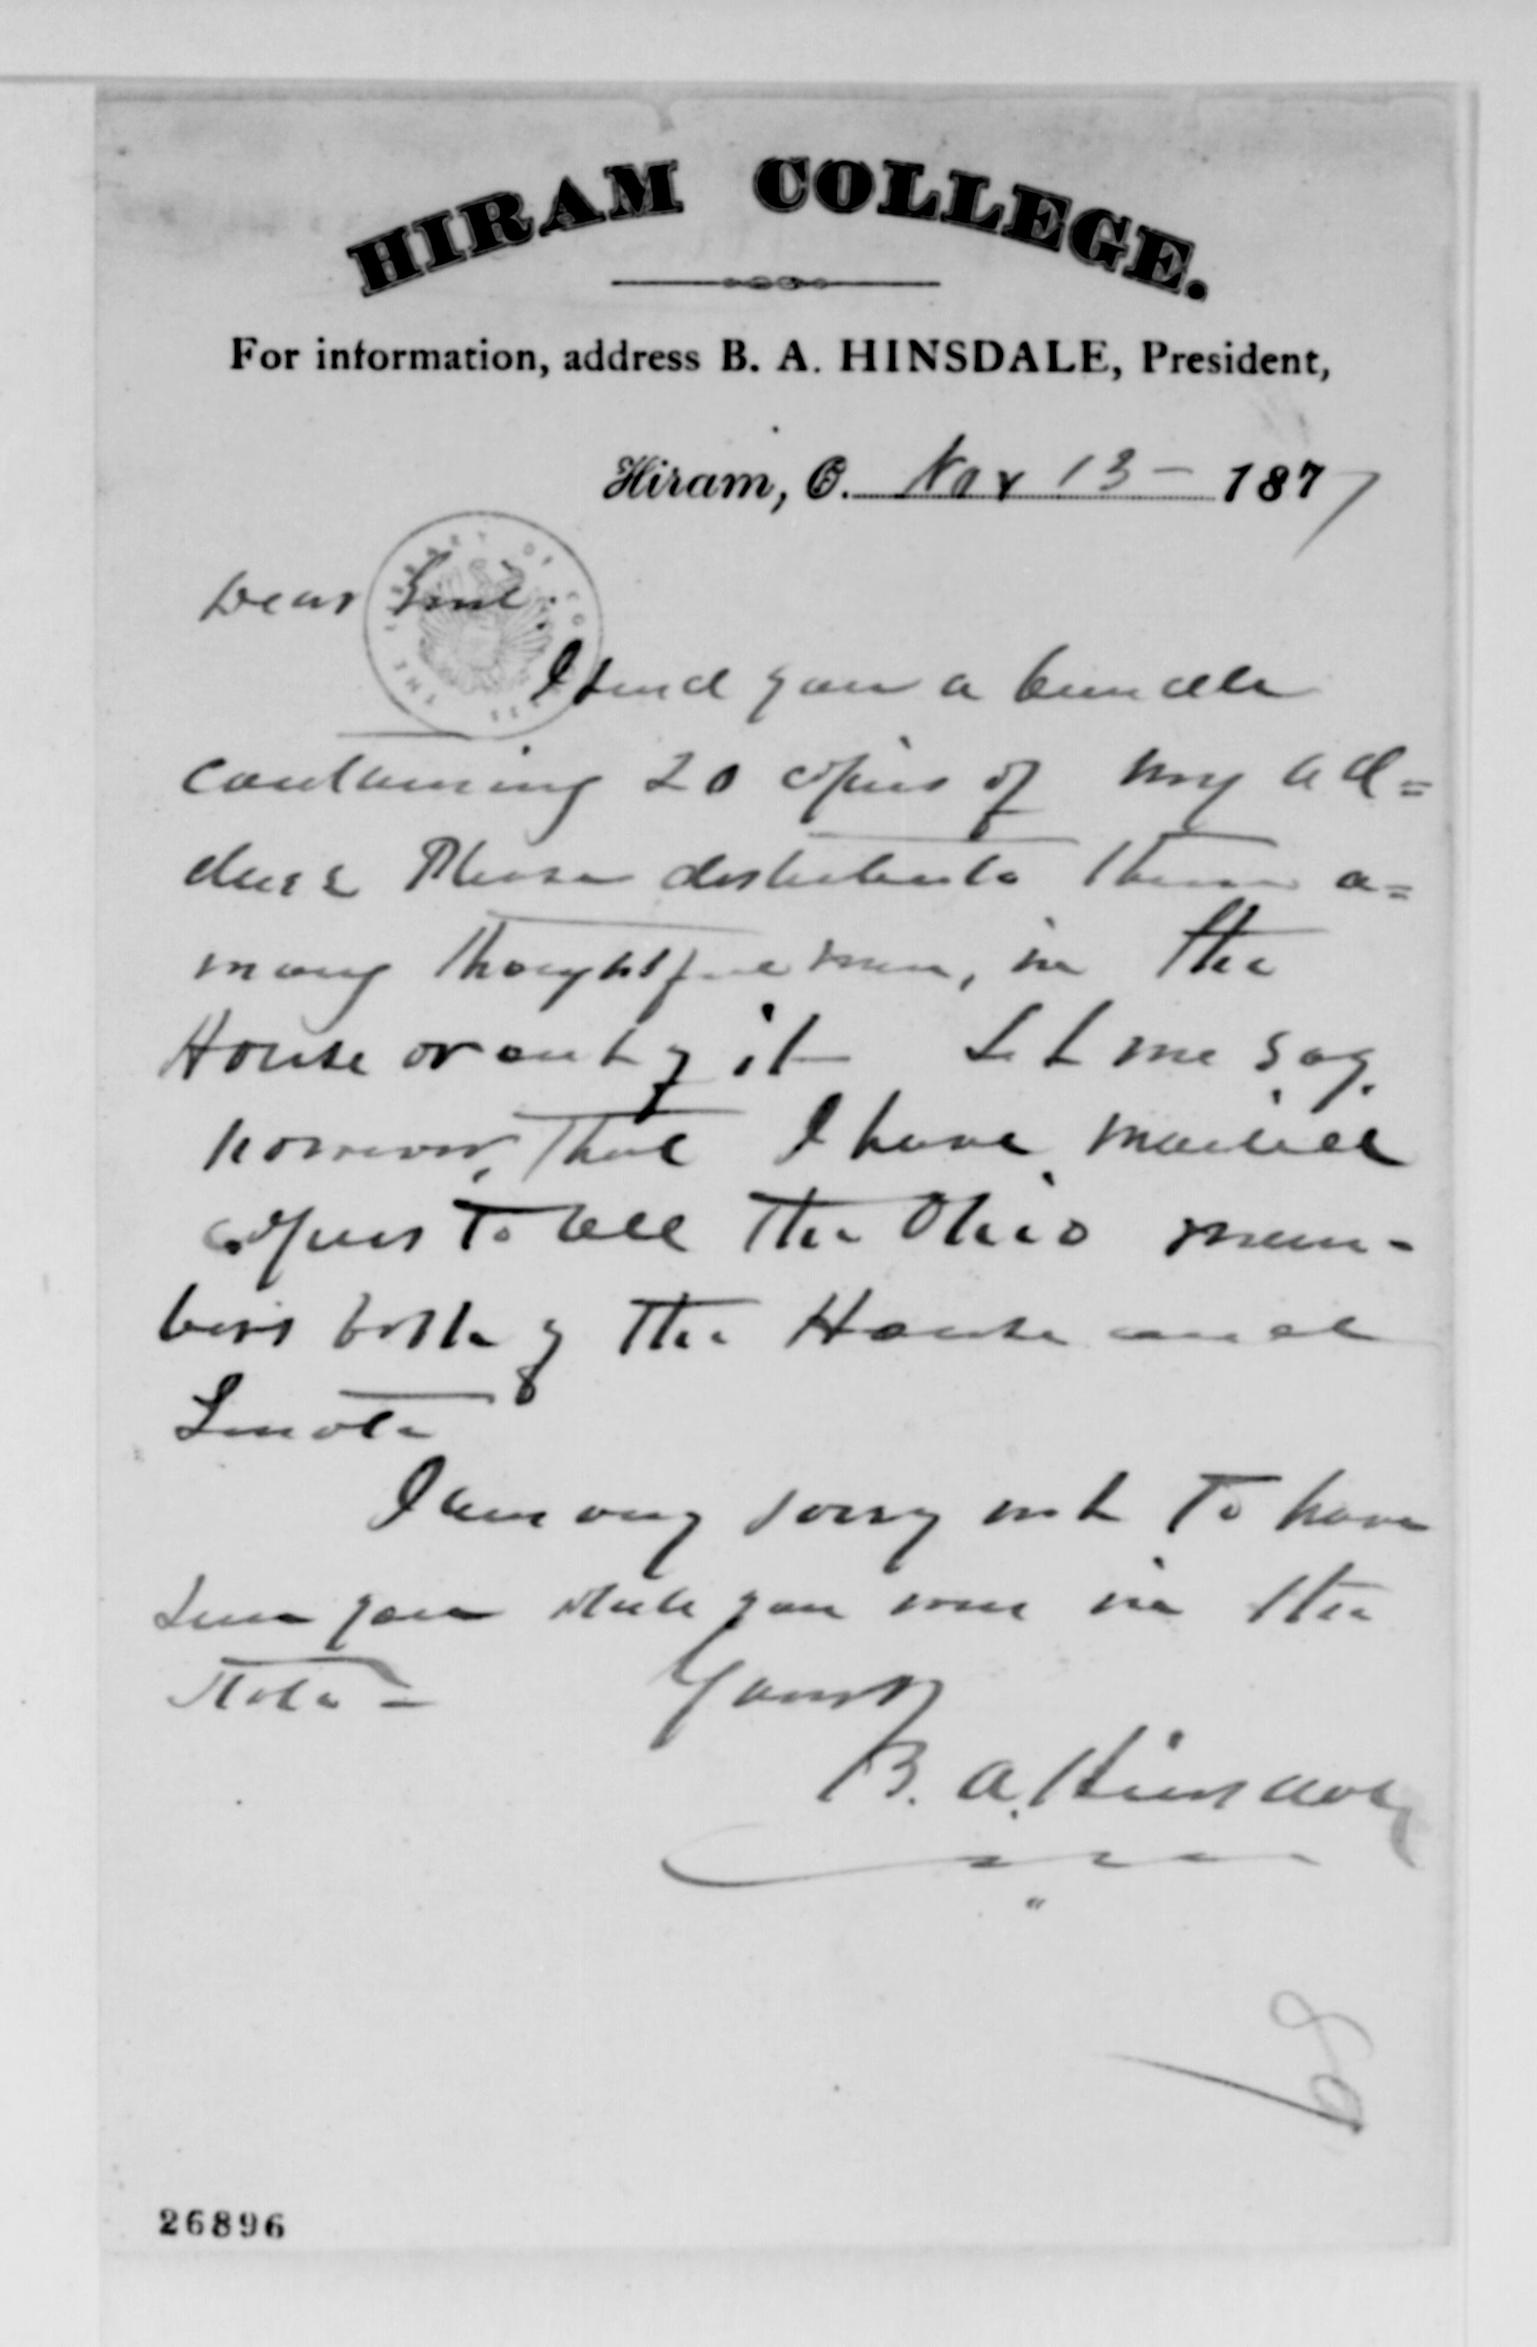 HIRAM COLLEGE.
For information, address B. A. HINSDALE, President,
Hiram, O. Nov 13 - 1877
Dear Genl:
I send you a bundle
containing 20 copies of my ad=
dress Please distribute them a=
mong thoughtful men, in the
House or out of it Let me say,
however, that I have mailed
copies to all the Ohio mem-
bers both of the House and
Senate
I am very sorry not to have
seen you while you were in the
State -
Yours
B. A. Hinsdale
26896